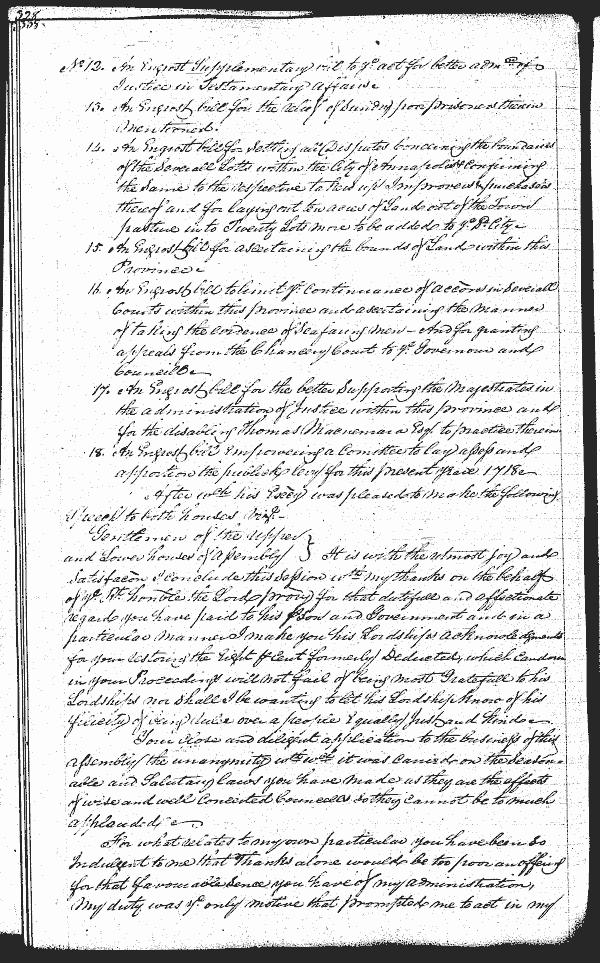 328
No. 12. An Engrost Supplementary bill to ye act for better admcon of
Justice in Testamentary Affairs
13. An Engrost bill for the relief of Sundry poor prisoners therein
Mentioned.
14. An Engrost bill for Settling all Disputes concerning the boundaries
of the Severall Lotts within the City of Annapolis & Confirming
the Same to the respective takers up Improvers & purchasers
thereof and for laying out ten acres of Land out of the Town
pasture into Twenty Lots more to be added to ye Sd. City
15. An Engrost bill for ascertaining the bounds of Land within this
Province
16. An Engrost bill to limit ye Continuance of accons in Severall
Courts within this province and ascertaining the Manner
of taking the evidence of Seafaring men - And for granting
appeals from the Chancery Court to ye Governour and
Councill
17. An Engrost bill for the better Supporting the Majestrates in
the administration of Justice within this province and
for the disabling Thomas Macnemara Esqr. to practice therein
18. An Engrost bill Empowering a Comittee to lay assess and
apportion the publick levy for this present year 1718
After wch his Excy was pleased to make the following
Speech to both houses vizt.
Gentlemen of the upper
and Lower houses of assembly } It is with the utmost joy and
Satisfacon I conclude this Session wth my thanks on the behalf
of ye Rt. honble the Lord propry for that dutifull and affectionate
regard you have paid to his pson and Government and in a
particular Manner I make you his Lordships acknowledgments
for your restoring the Eight p Cent formerly Deducted, which Candour
in your Proceedings will not fail of being most Gratefull to his
Lordship nor shall I be wanting to let his Lordship know of his
felicity of being ruler over a people Equally just and kind
Your close and diligent application to the business of this
assembly the unanimity wth wch it was carried on the Season-
able and Salutary laws you have made as they are the effects
of wise and well Concerted Councells so they cannot be to much
applauded
For what relates to my own particular you have been so
Indulgent to me that Thanks alone would be too poor an offering
for that favourable Sence you have of my administration,
My duty was ye only motive that prompted me to act in my